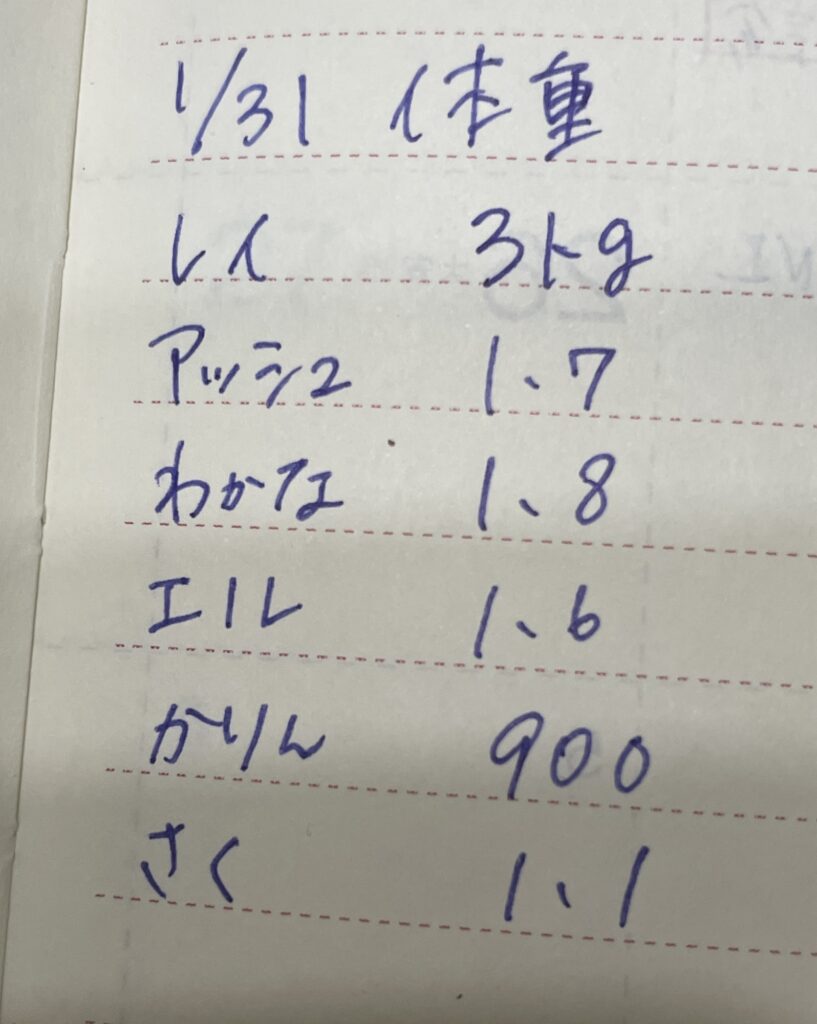 1/31 体重
レイ 3kg
アッシュ 1、7
わかな 1、8
エル 1、6
かりん 900
さく 1、1